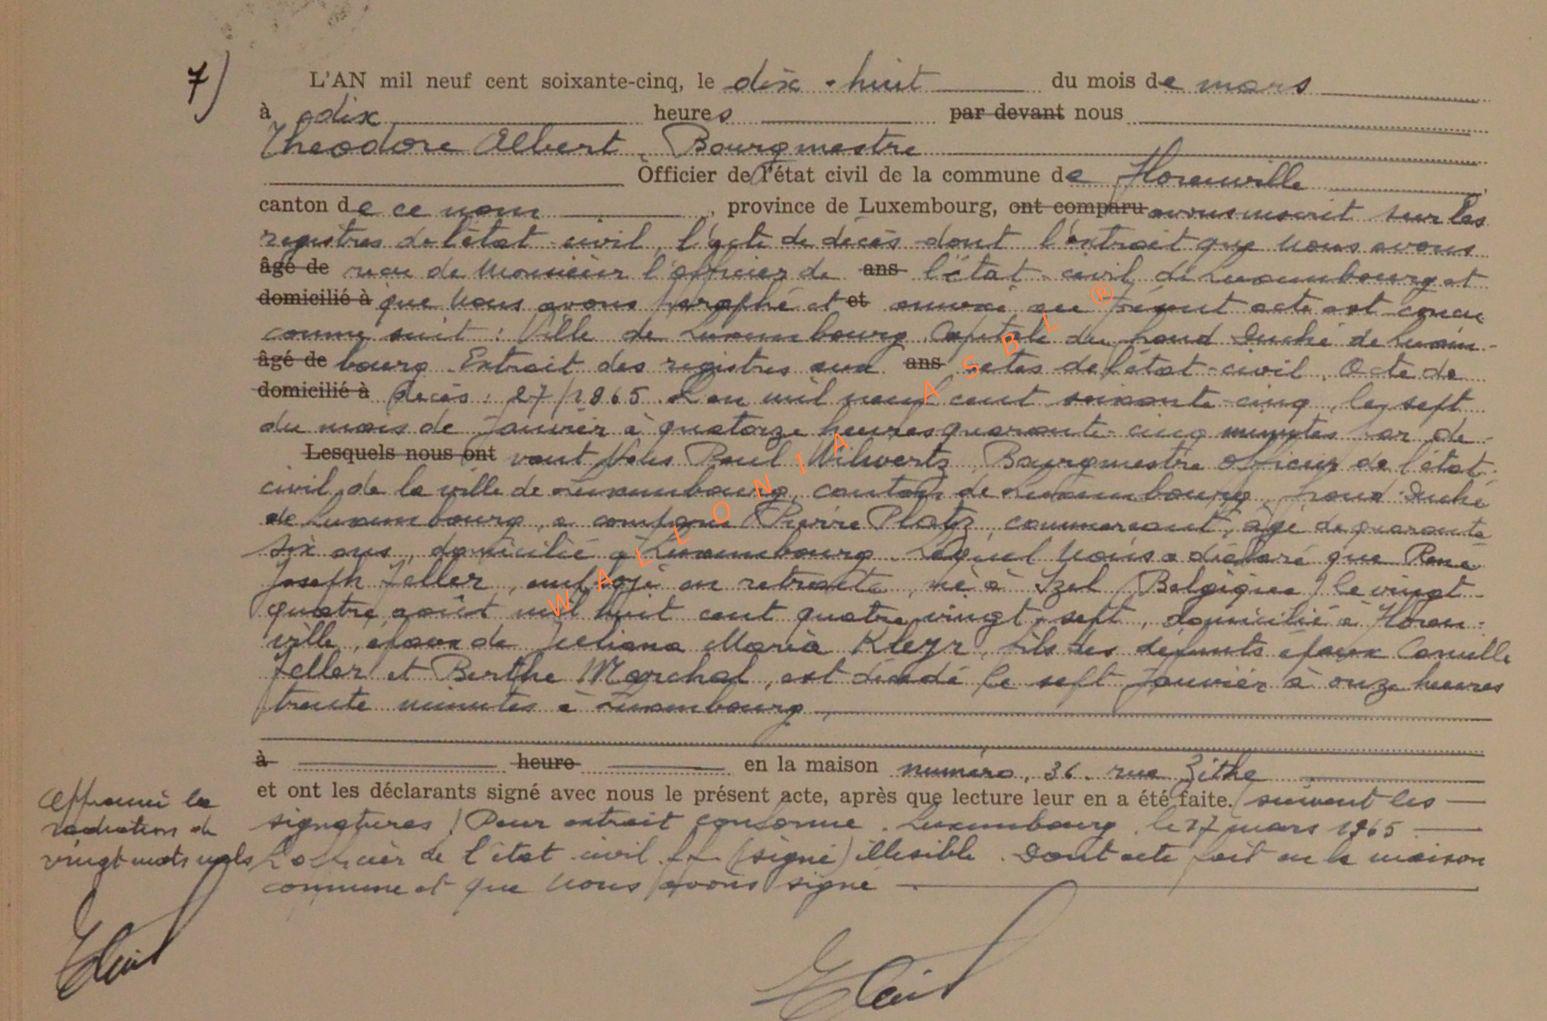 7)
L'AN mil neuf cent soixante-cinq, le dix-huit du mois de mars
à dix heures par devant nous
Théodore Albert, Bourgmestre
Officier de l'état civil de la commune de Florenville
canton de ce nom, province de Luxembourg, ont comparu avons inscrit sur les
registres de l'état civil, l'acte de décès dont l'extrait que nous avons
âgé de reçu de Monsieur l'officier de ans l'état civil de Luxembourg et
domicilié à que nous avons paraphé et et annexé au présent acte est conçu
comme suit : Ville de Luxembourg Capitale du Grand Duché de Luxem-
âgé de bourg. Extrait des registres aux ans actes de l'état-civil. Acte de
domicilié à décès : 27/1965. L'an mil neuf cent soixante-cinq, le sept
du mois de Janvier à quatorze heures quarante-cinq minutes par de-
Lesquels nous ont vant Nous Paul Wilwertz, Bourgmestre officier de l'état-
civil de la ville de Luxembourg, canton de Luxembourg, Grand-Duché
de Luxembourg, a comparu Pierre Platz, commerçant, âgé de quarante
six ans, domicilié à Luxembourg. Lequel Nous a déclaré que René
Joseph Feller, employé en retraite, né à Izel (Belgique) le vingt
quatre août mil huit cent quatre vingt-sept, domicilié à Floren-
ville, époux de Juliana Maria Kleyr, fils des défunts époux Camille
Feller et Berthe Marchal, est décédé le sept janvier à onze heures
trente minutes à Luxembourg,
à heure en la maison numéro, 36. rue Zithe
et ont les déclarants signé avec nous le présent acte, après que lecture leur en a été faite. (suivent les
signatures) Pour extrait conforme. Luxembourg, le 17 mars 1965
L'officier de l'état civil ff (signé) illisible. Dont acte fait en la maison
commune et que nous avons signé
Approuvé la
radiation de
vingt mots nuls
WALLONIA ASBL ®